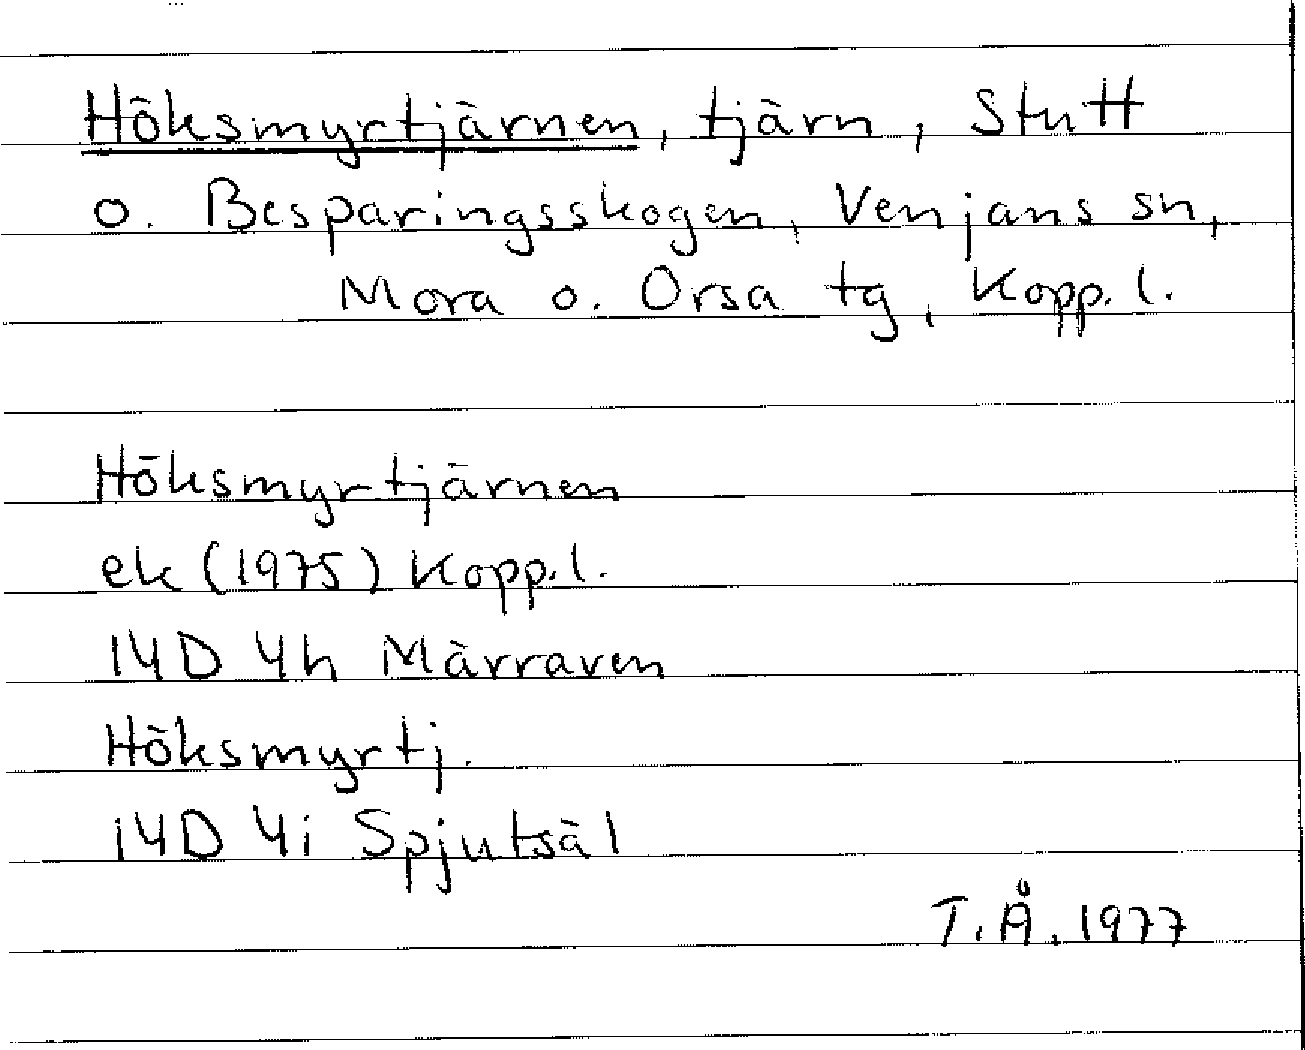 Höksmyrtjärnen, tjärn, Stutt
o. Besparingsskogen, Venjans sn,
Mora o. Orsa tg, Kopp. l.
Höksmyrtjärnen
ek (1975) Kopp. l.
14D 4h Märraven
Höksmyrtj.
14D 4i Spjutsäl
T. Å. 1977